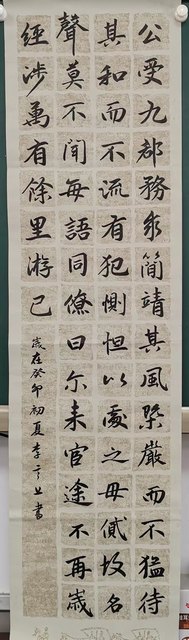 公受九郡務家簡靖其風檗嚴而不猛待
其和而不流有犯惻怛以處之毋貳故名
聲莫不聞每語同僚曰尔来官途不再歲
經涉萬有餘里游已
歲在癸卯初夏李云上書